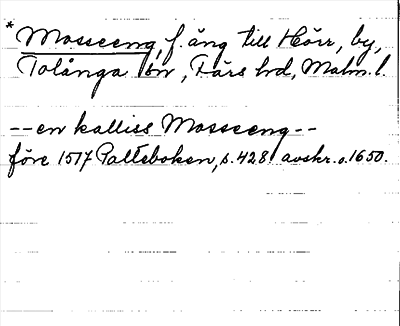 * Mosseeng, f. äng till Hörr, by,
Tolånga sn, Färs hd, Malm. l.
--en kalliss Mosseeng--
före 1517 Palteboken, s. 428 avskr. o. 1650.